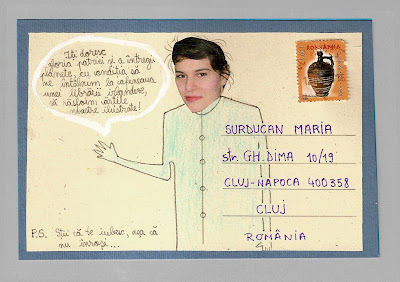 Îți doresc
gloria patriei și a întregii
planete, cu condiția să
ne întâlnim la cafeneaua
unei librării irlandeze,
să răsfoim cărțile
noastre ilustrate!
ROMÂNIA
SURDUCAN MARIA
str. GH. DIMA 10/19
CLUJ-NAPOCA 400358
CLUJ
ROMÂNIA
P.S. Știi că te iubesc, așa că
nu înroși...